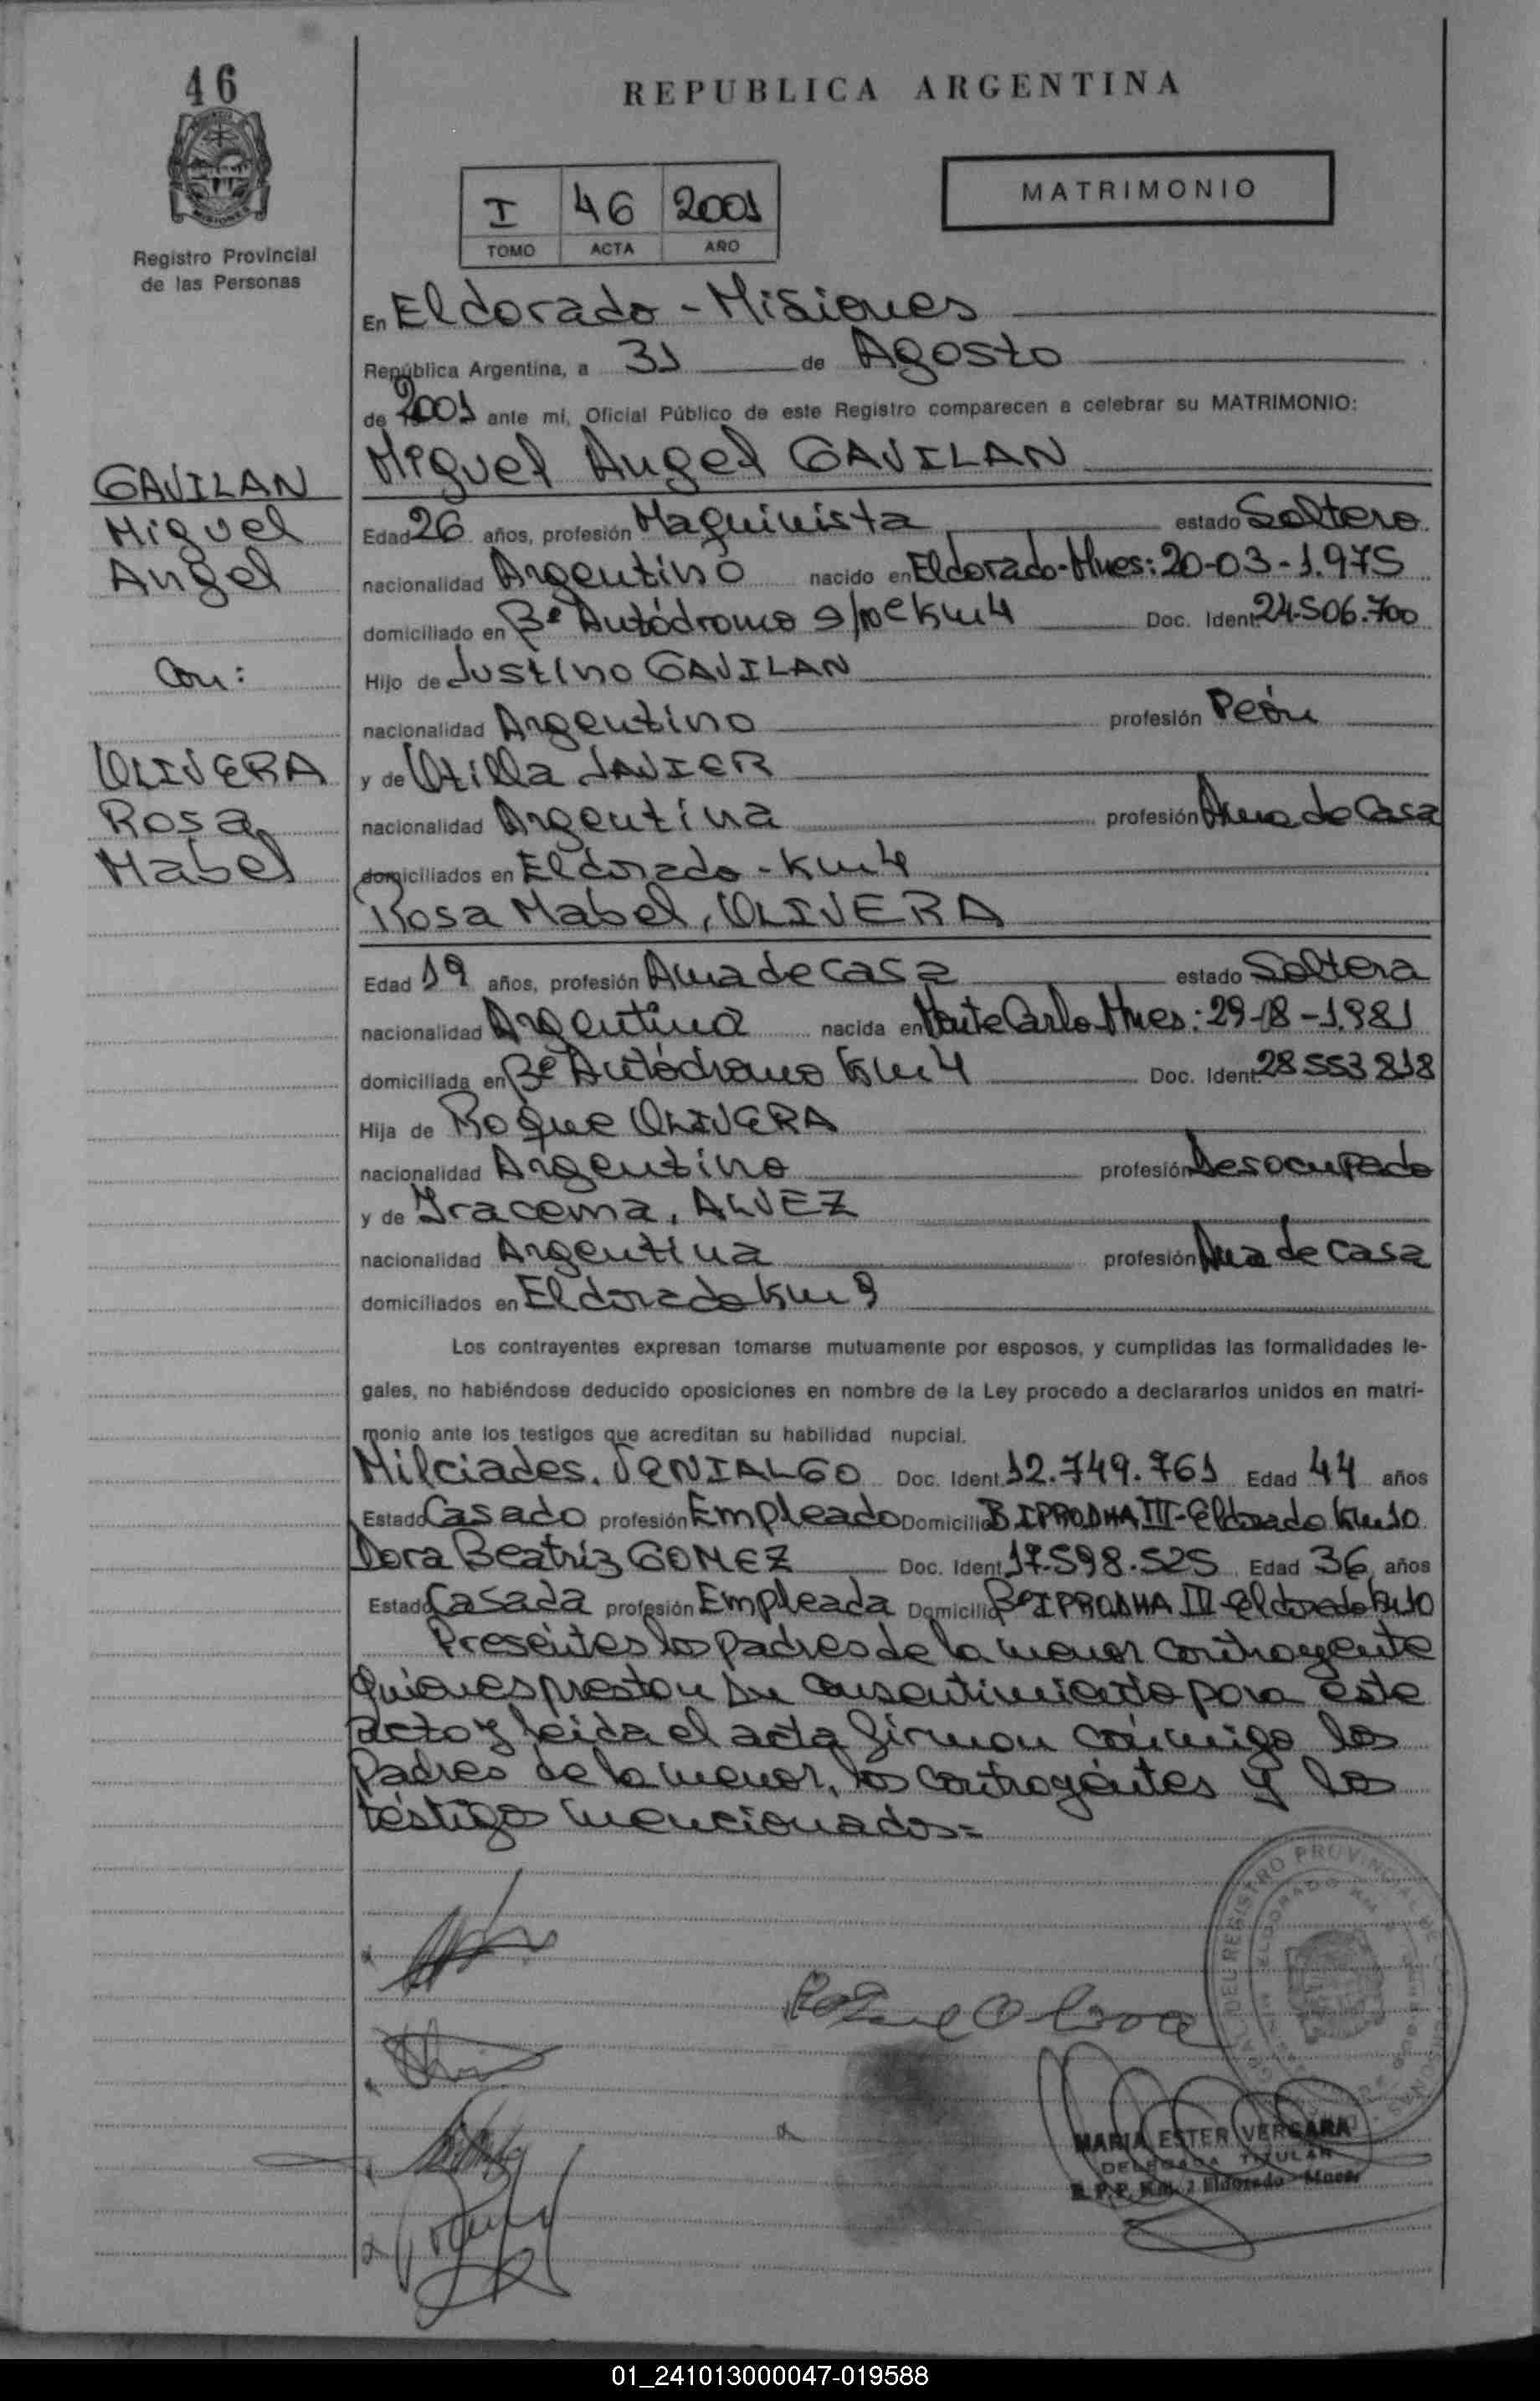 46
REPUBLICA ARGENTINA
I 46 2001
TOMO ACTA AÑO
MATRIMONIO
Registro Provincial
de las Personas
En Eldorado - Misiones
República Argentina, a 31 de Agosto
de 2001 ante mi, Oficial Público de este Registro comparecen a celebrar su MATRIMONIO:
Miguel Angel GAVILAN
GAVILAN
Miguel
Angel
Con:
OLIVERA
Rosa
Mabel
Edad 26 años, profesión Maquinista estado Soltero
nacionalidad Argentino nacido en Eldorado-Mnes: 20-03-1.975
domiciliado en Bº Autódromo s/nº Km 4 Doc. Ident. 24.506.700
Hijo de Justino GAVILAN
nacionalidad Argentino profesión Peón
y de Otilla JAVIER
nacionalidad Argentina profesión Ama de Casa
domiciliados en Eldorado - Km 4
Rosa Mabel, OLIVERA
Edad 19 años, profesión Ama de casa estado Soltera
nacionalidad Argentina nacida en Monte Carlo Mnes: 29- -1.981
domiciliada en Bº Autódromo Km 4 Doc. Ident. 28.553.818
Hija de Roque OLIVERA
nacionalidad Argentino profesión Desocupado
y de Iracema, ALVEZ
nacionalidad Argentina profesión Ama de casa
domiciliados en Eldorado Km 9
Los contrayentes expresan tomarse mutuamente por esposos, y cumplidas las formalidades le-
gales, no habiéndose deducido oposiciones en nombre de la Ley procedo a declararlos unidos en matri-
monio ante los testigos que acreditan su habilidad nupcial.
Milciades, VENIALGO Doc. Ident. 12.749.761 Edad 44 años
Estado Casado profesión Empleado Domicilio B IPRODHA III-Eldorado Km 10
Dora Beatriz GOMEZ Doc. Ident. 17.598.525 Edad 36 años
Estado Casada profesión Empleada Domicilio Bº IPRODHA III-Eldorado Km 10
Presentes los padres de la menor contrayente
quienes prestan su consentimiento para este
acto y leida el acta firman conmigo los
padres de la menor, los contrayentes y los
testigos mencionados=
MARIA ESTER VERGARA
DELEGADA TITULAR
R. P. P. Km. 2 Eldorado - Mnes.
01_241013000047-019588